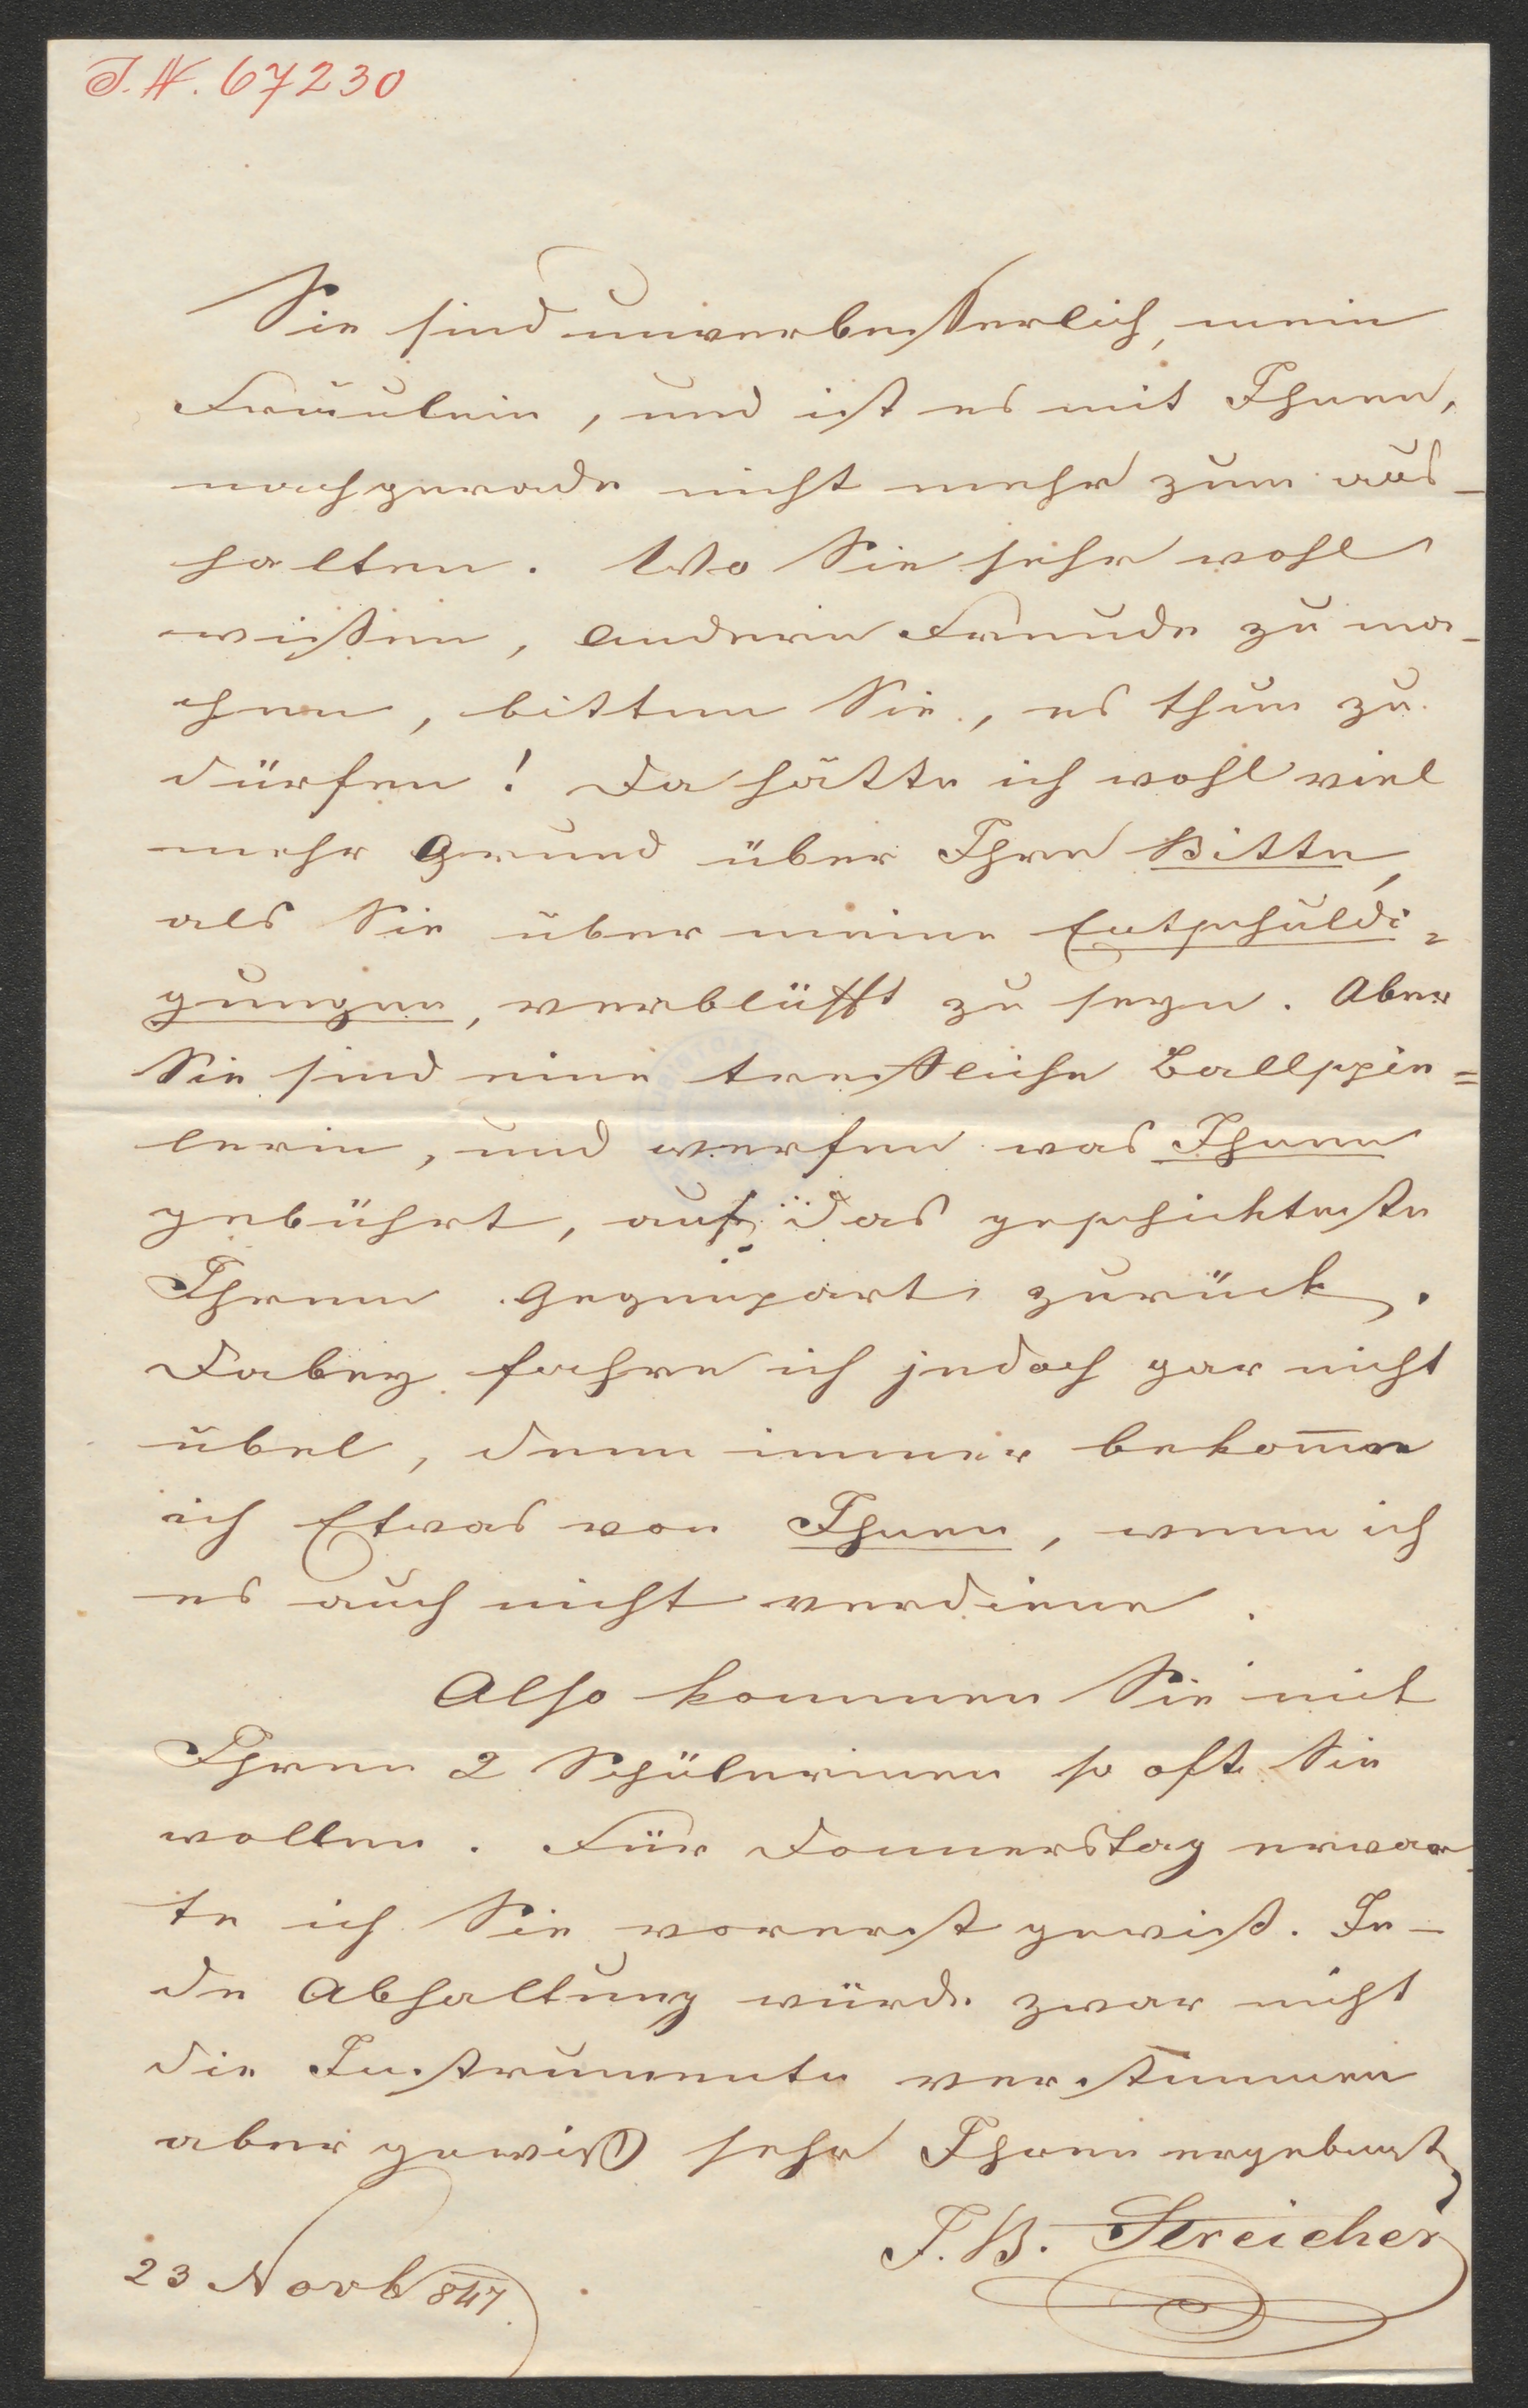 I.N. 67230
Sie sind unverbesserlich, mein
Fräulein, und ist es mit Ihnen,
nachgerade nicht mehr zum aus-
halten. Wo Sie sehr wohl
wißen, Andern Freude zu ma-
chen, bitten Sie, es thun zu
dürfen! Da hätte ich wohl viel
mehr Grund über Ihre Bitte,
als Sie über meine Entschuldi=
gungen, verblüfft zu seyn. Aber
Sie sind eine treffliche Ballspie=
lerin, und werfen was Ihnen
gebührt, auf das geschickteste
Ihrem Gegenpart zurück.
Dabey fahre ich jedoch gar nicht
übel, denn immer bekom̅e
ich Etwas von Ihnen, wenn ich
es auch nicht verdiene.
Also kommen Sie mit
Ihren 2 Schülerinen so oft Sie
wollen. Für Donnerstag erwar-
te ich Sie vorerst gewiß. Je-
de Abhaltung würde zwar nicht
die Instrumente verstimmen
aber gewiß sehr Ihren ergebenst
J. B. Streicher
23 Novb 847